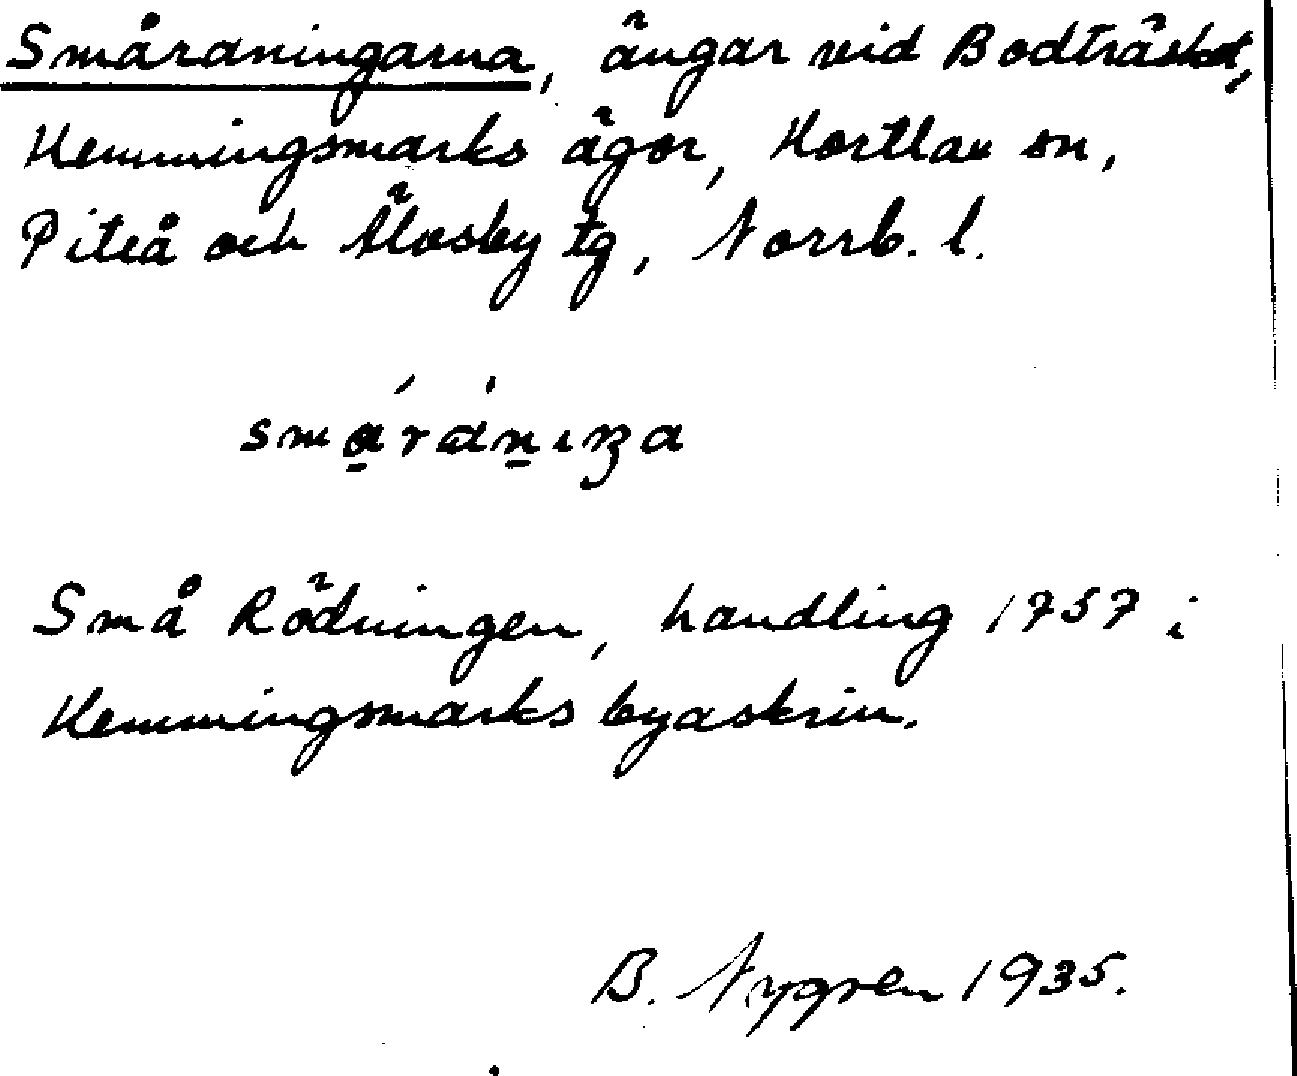 Smårdningarna, ängar vid Bodträsket,
Hemmingsmarks ägor, Hortlax sn,
Piteå och Älvsby tg, Norrb. l.
Små Rödningen, handling 1757 i
Hemmingsmarks byaskrin.
B. Nygren 1935.